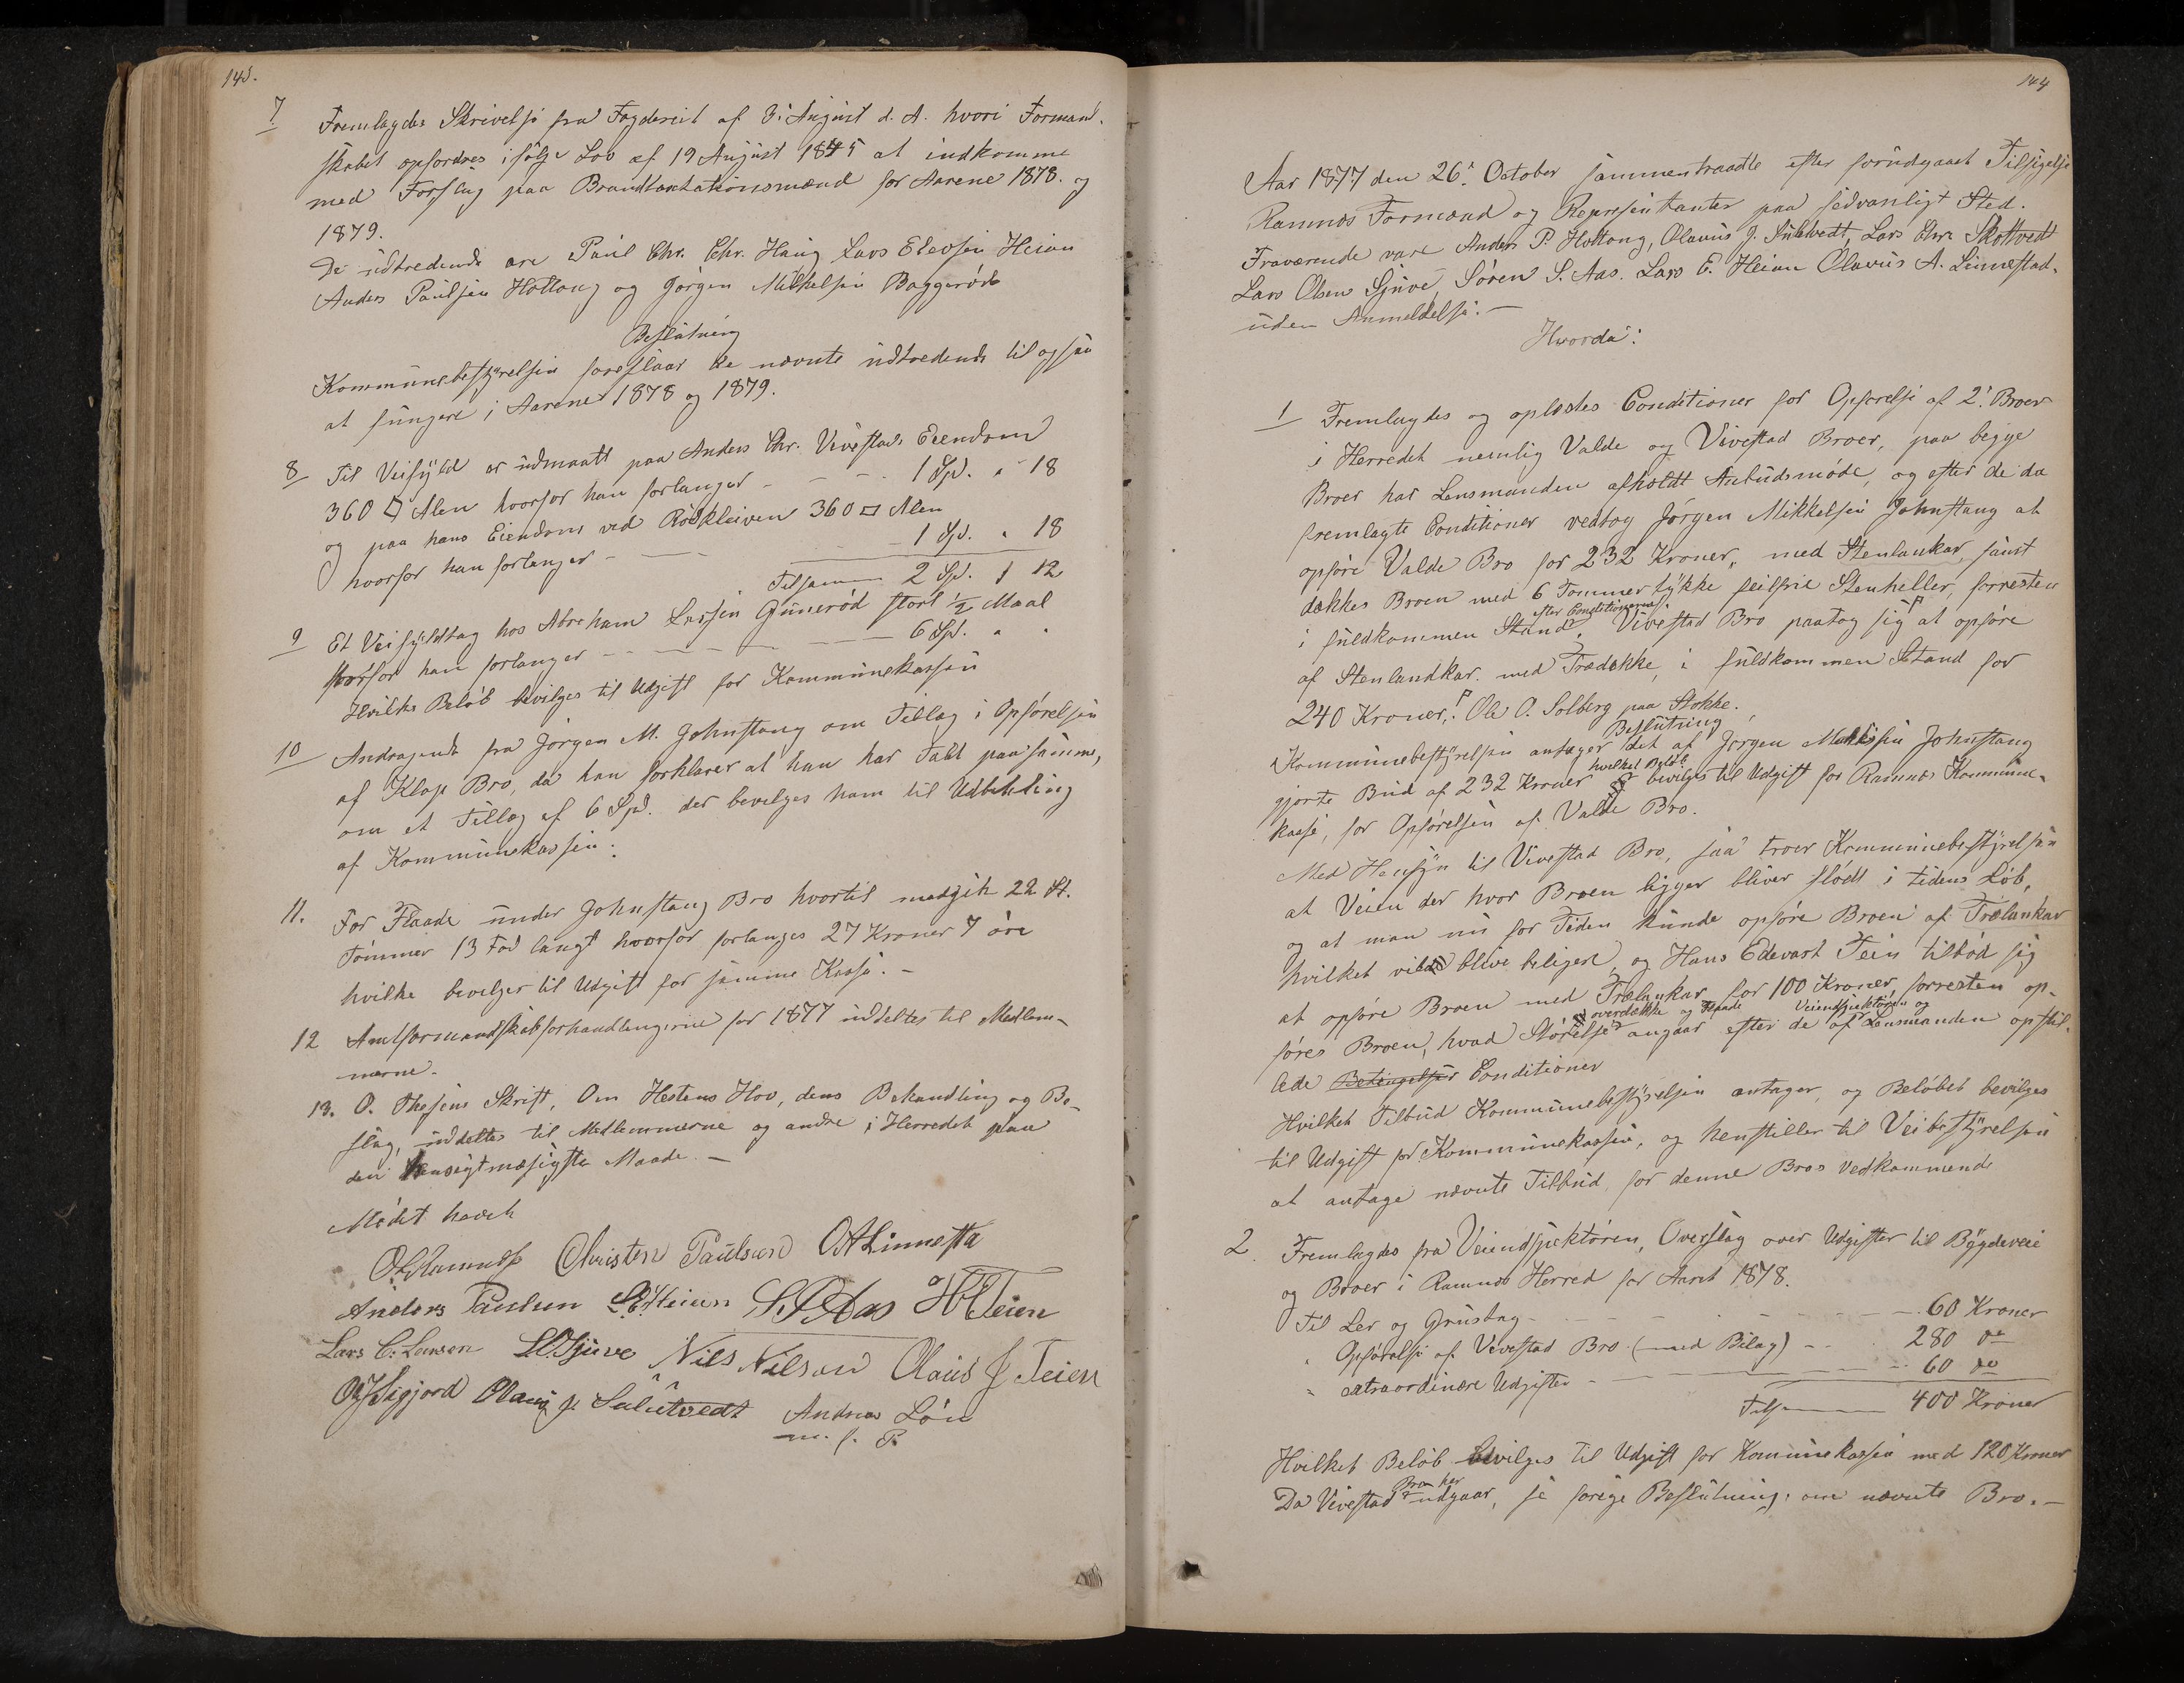 143.
7 Fremlagdes Skrivelse fra Fogderiet af 3. August d. A. hvori Formand-
skabet opfordres ifølge Lov af 19 August 1845 at indkomme
med Forslag paa Brandtaxtationsmænd for Aarene 1878. og
1879.
De udtredende ere Paul Chr. Chr. Haug Lars Elevsen Heian
Anders Paulsen Hottong og Jørgen Mikkelsen Baggerød
Beslutning
Kommunebestyrelsen foreslaar de nevnte udtredende til ogsaa
at fungere i Aarene 1878 og 1879.
8 Til Veifyld er udmaalt paa Anders Chr. Vivestads Eiendom
360 □ Alen hvorfor han forlanger - - - 1 Spd. " 18
og paa hans Eiendom ved Rødkleiven 360 □ Alen
hvorfor han forlanger - - - 1 Spd. " 18
Tilsammen 2 Spd. 1 12
9 Et Veifyldtag hos Abraham Larsen Gunerød stort 1/2 Maal
hvorfor han forlanger - - - 6 Spd. " "
Hvilke Beløb bevilges til Udgift for Kommunekassen
10 Andragende fra Jørgen M. Johnstang om Tillæg i Opførelsen
af Klop Bro, da han forklarer at han har Tabt paa samme,
om et Tillæg af 6 Spd. der bevilges ham til Udbetaling
af Kommunekassen.
11. For Flaade under Johnstang Bro hvortil medgik 22 St.
Tømmer 13 Fod langt hvorfor forlanges 27 Kroner 7 øre
hvilke bevilges til Udgift for samme Kasse. -
12 Amtformandskabsforhandlingerne for 1877 uddeltes til Medlem-
merne.
13. O. Thesens Skrift, Om Hestens Hov, dens Behandling og Be-
slag, uddeltes til Medlemmerne og andre i Herredet paa
den hensigtmæsigste Maade. -
Mødet hævet
Christen Paulsen OALinnesta
Anders Paulsen LEHeian S.S.Aas HTeien
Lars C. Larsen LOSjuve Nils Nilsen Olaus J Teien
Olaus J. Sulutvedt Andreas Lön
m. f. P.
144
Aar 1877 den 26. October sammentraadte efter forudgaaet Tilsigelse
Ramnes Formænd og Representanter paa sedvanligt Sted.
Fraværende vare Anders P. Hottong, Olavus J. Sulutvedt, Lars Chr. Skottvedt
Lars Olsen Sjuve, Søren S. Aas. Lars E. Heian Olavus A. Linnestad.
uden Anmeldelse. -
Hvorda:
1 Fremlagdes og oplæstes Conditioner for Opførelse af 2. Broer
i Herredet nemlig Valde og Vivestad Broer, paa begge
Broer har Lensmanden afholdt Anbudsmøde, og efter de da
fremlagte Conditioner vedtog Jørgen Mikkelsen Johnstang at
opføre Valde Bro for 232 Kroner, med Stenlankar samt
dækkes Broen med 6 Tommer tykke feilfrie Stenheller, forresten
i fuldkommen Stand efter Conditionerne. Vivestad Bro paatog sig at opføre
af Stenlandkar. med Trædække, i fuldkommen Stand for
240 Kroner, Ole O. Solberg paa Stokke.
Beslutning
Kommunebestyrelsen antager det af Jørgen Mikkelsen Johnstang
gjorte Bud af 232 Kroner hvilket Beløb bevilges til Udgift for Ramnes Kommune-
kasse, for Opførelsen af Valde Bro.
Med Hensyn til Vivestad Bro, saa troer Kommunebestyrelsen
at Veien der hvor Broen ligger bliver flødt i tidens Løb,
og at man nu for Tiden kunde opføre Broen af Trælankar
hvilket vilde blive beligere, og Hans Edevart Tein tilbød sig
at opføre Broen med Trælankar for 100 Kroner, forresten op-
føres Broen, hvad Størelse overdække og Flaade angaar efter de af Veiindspektøren og Lensmanden opstil-
lede Betingelser Conditioner
Hvilket Tilbud Kommunebestyrelsen antager, og Beløbet bevilges
til Udgift for Kommunekassen, og henstiller til Veibestyrelsen
at antage nevnte Tilbud for denne Bros vedkommende
2. Fremlagdes fra Veiindspektøren, Overslag over Udgifter til Bygdeveie
og Broer i Ramnes Herred for Aaret 1878.
Til Ler og Grustag - - - 60 Kroner
" Opførelse af Vivestad Bro (med Bilag) - - 280 do
" extraordinære Udgifter - - - 60 do
Tils. 400 Kroner
Hvilket Beløb bevilges til Udgift for Kommunekassen med 120 Kroner
Da Vivestad Broen her udgaar, se forige Beslutning om nevnte Bro. -